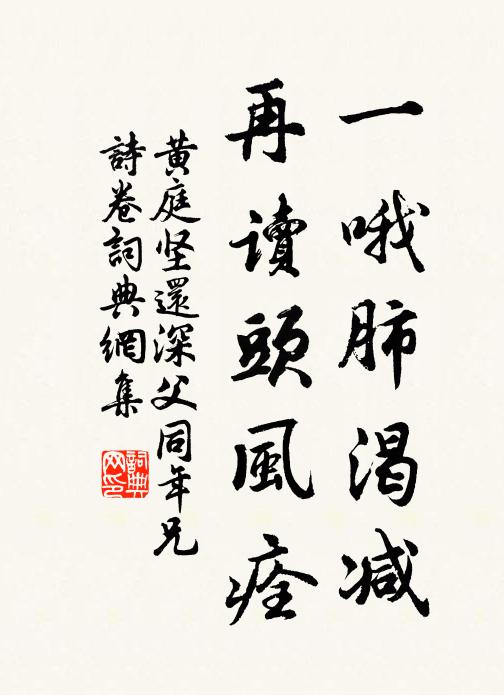 一哦肺渴减
再讀頭風痊
黄庭坚還深父同年兄
詩卷詞典網集
詞典网印